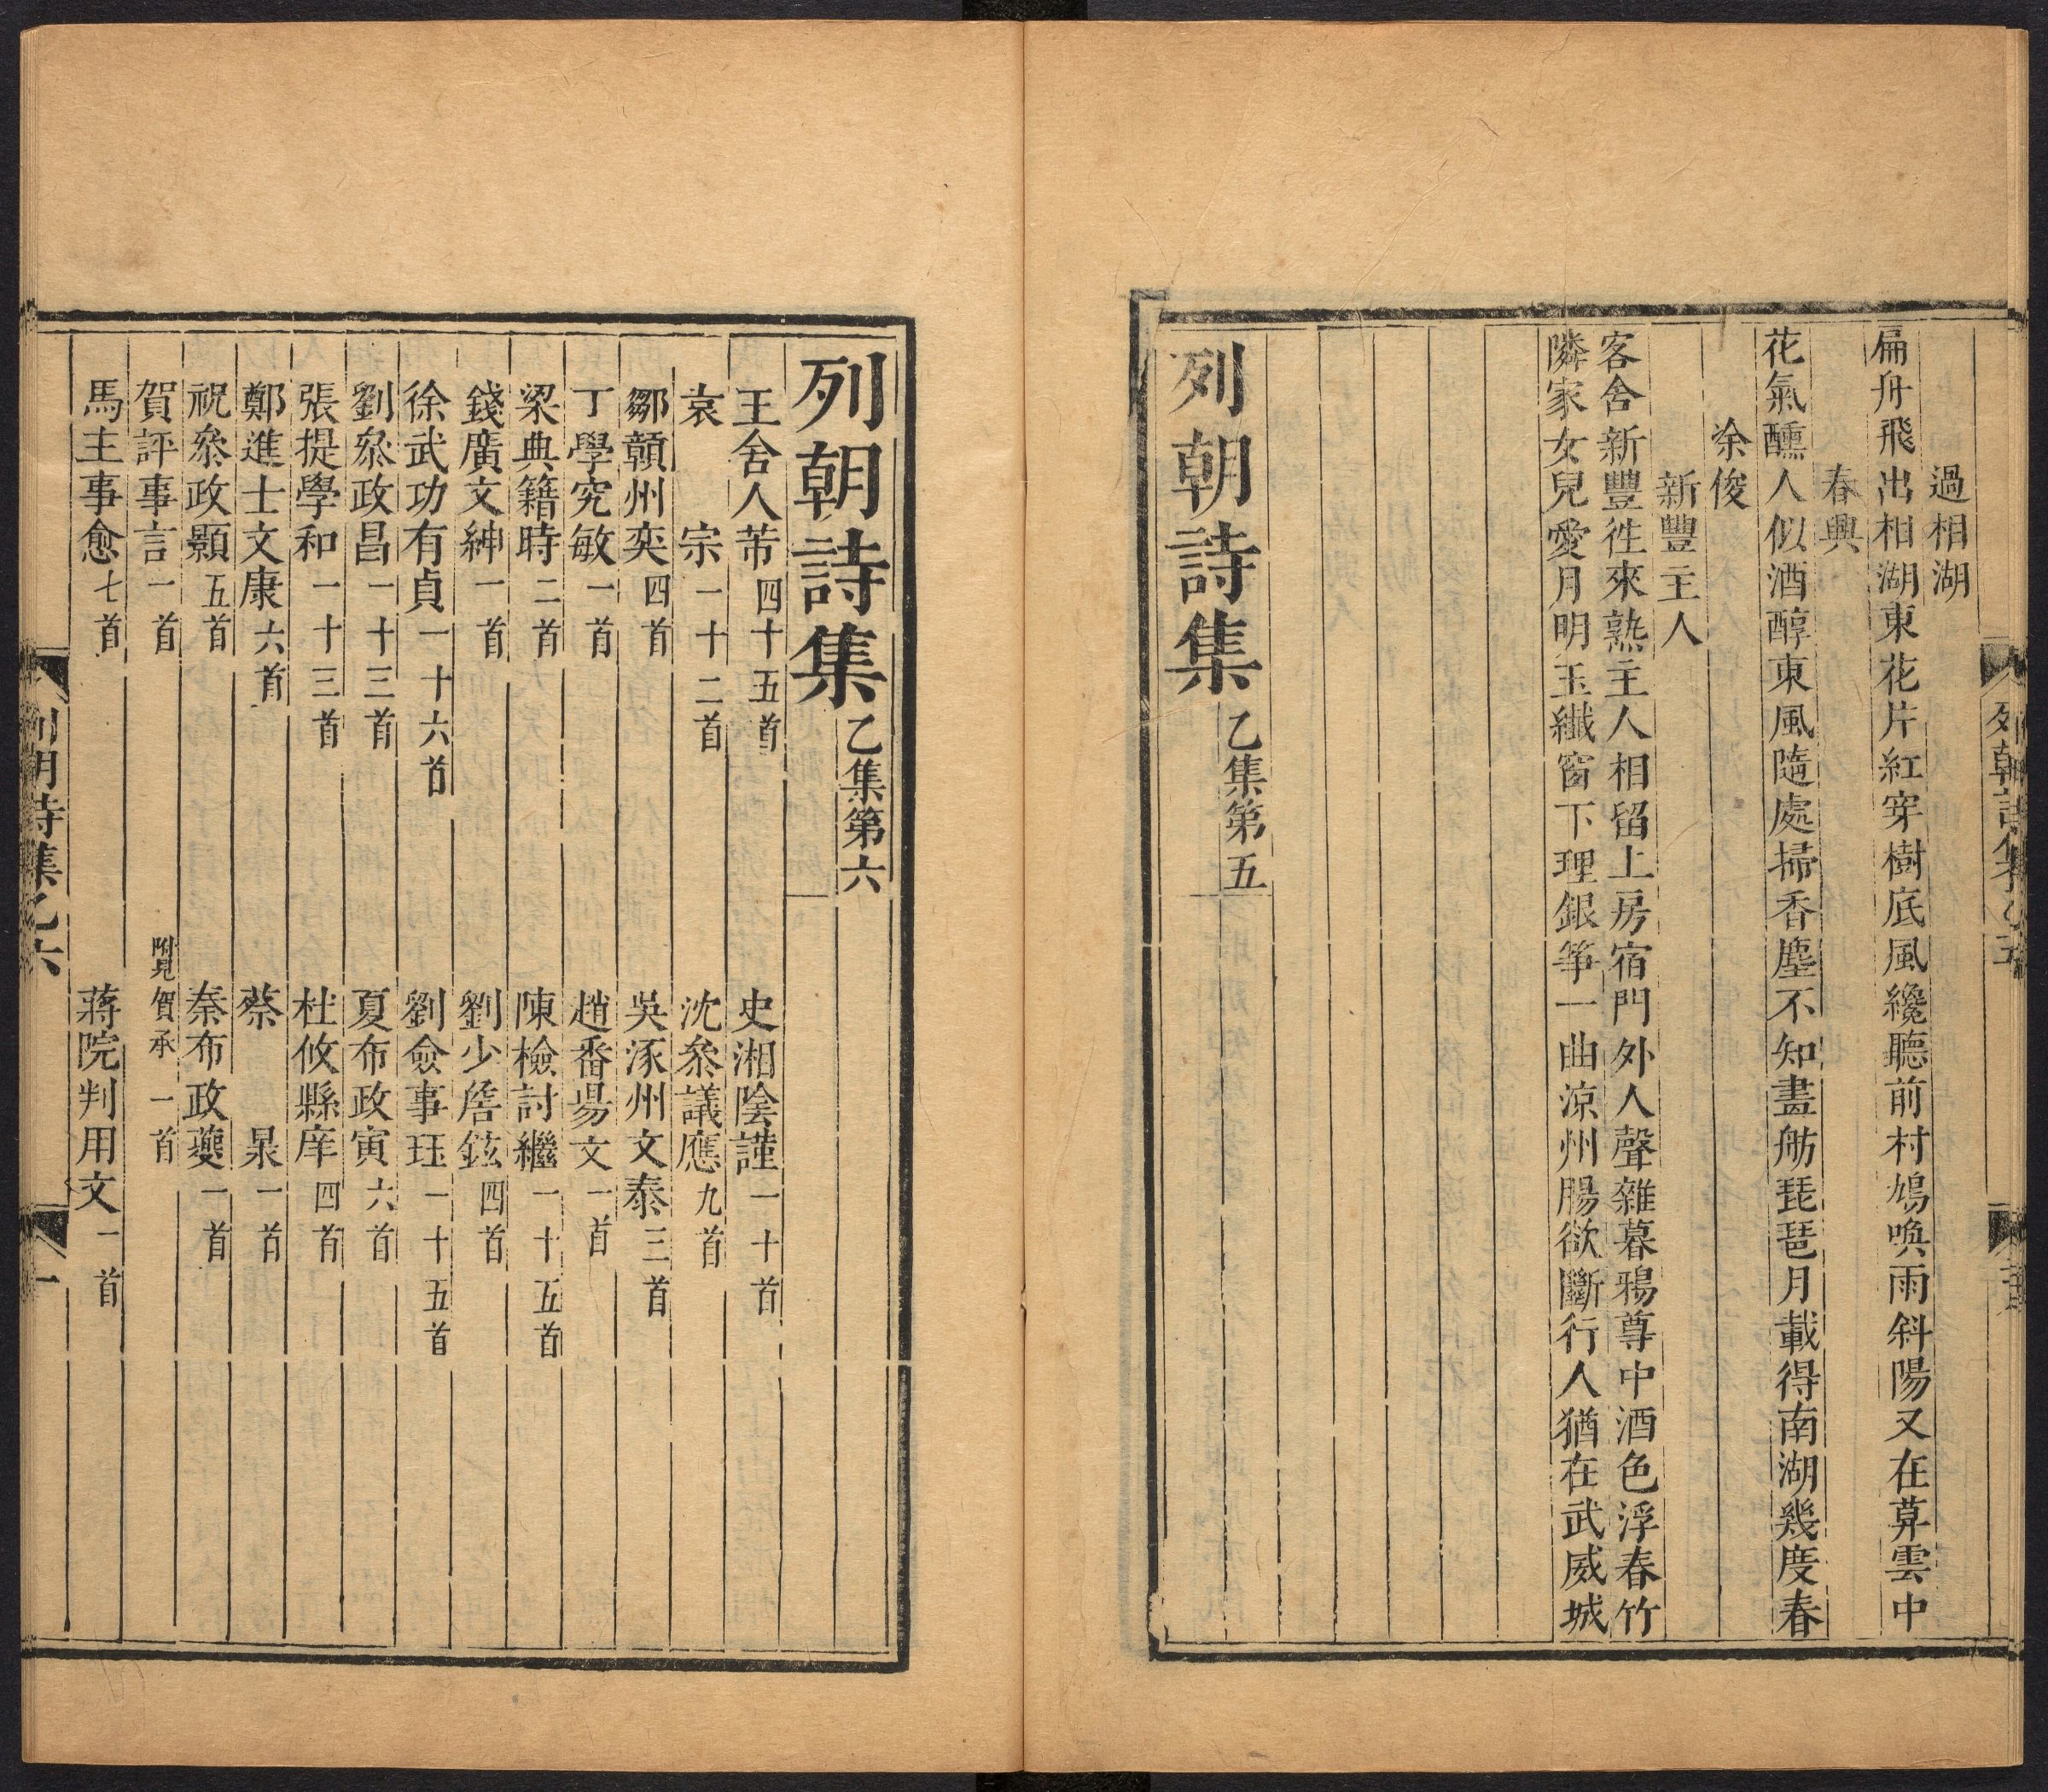 過相湖
扁舟飛出相湖東花片紅穿樹底風纔聽前村鳩喚雨斜陽又在莫雲中
春興
花氣醺人似酒醇東風隨處掃香塵不知畫舫琵琶月載得南湖幾度春
涂俊
新豐主人
客舍新豐徃來熟主人相留上房宿門外人聲雜暮鴉尊中酒色浮春竹
隣家女兒愛月明玉纖窗下理銀箏一曲涼州腸欲斷行人猶在武威城
列朝詩集 乙集第五
列朝詩集 乙集第六
王舍人芾四十五首 史湘陰謹一十首
袁 宗一十二首 沈叅議應九首
鄒贑州奕四首 吳涿州文泰三首
丁學究敏一首 趙番昜文一首
梁典籍時二首 陳檢討繼一十五首
錢廣文紳一首 劉少詹鉉四首
徐武功有貞一十六首 劉僉事珏一十五首
劉叅政昌一十三首 夏布政寅六首
張提學和一十三首 杜攸縣庠四首
鄭進士文康六首 蔡 杲一首
祝叅政顥五首 秦布政夔一首
賀評事言一首 附見賀承一首
馬主事愈七首 蔣院判用文一首
列朝詩集乙六 一